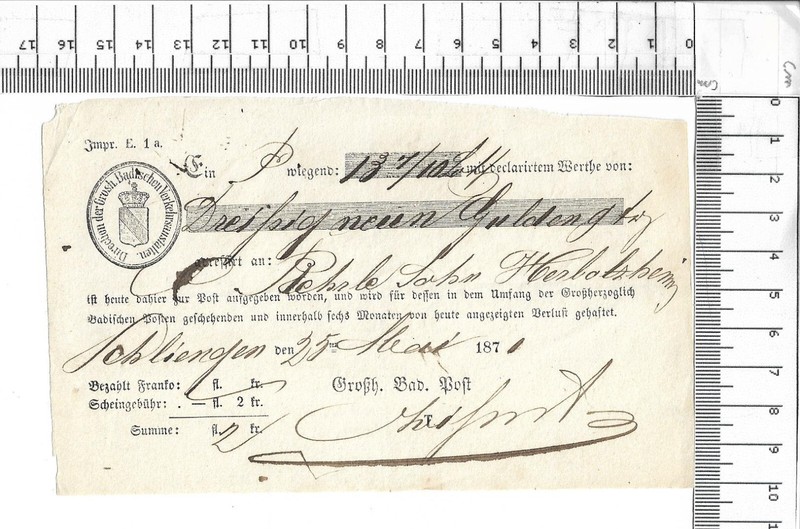 17 16 15 14 13 12 11 10 9 8 7 6 5 4 3 2 1 0
cm cm
Impr. E. 1 a.
Ein P wiegend: 13 7/10 mit declarirtem Werthe von:
Direction der Grosh. Badischen Verkehrsanstalten.
Dreißig neun Gulden
adressirt an: Sohn Herbolzheim
ist heute dahier zur Post aufgegeben worden, und wird für dessen in dem Umfang der Großherzoglich
Badischen Posten geschehenden und innerhalb sechs Monaten von heute angezeigten Verlust gehaftet.
Schliengen den 25ten Mai 187
Bezahlt Franko: fl. kr. Großh. Bad. Post
Scheingebühr: . — fl. 2 kr.
Summe: fl. 2 kr.
0
1
2
3
4
5
6
7
8
9
10